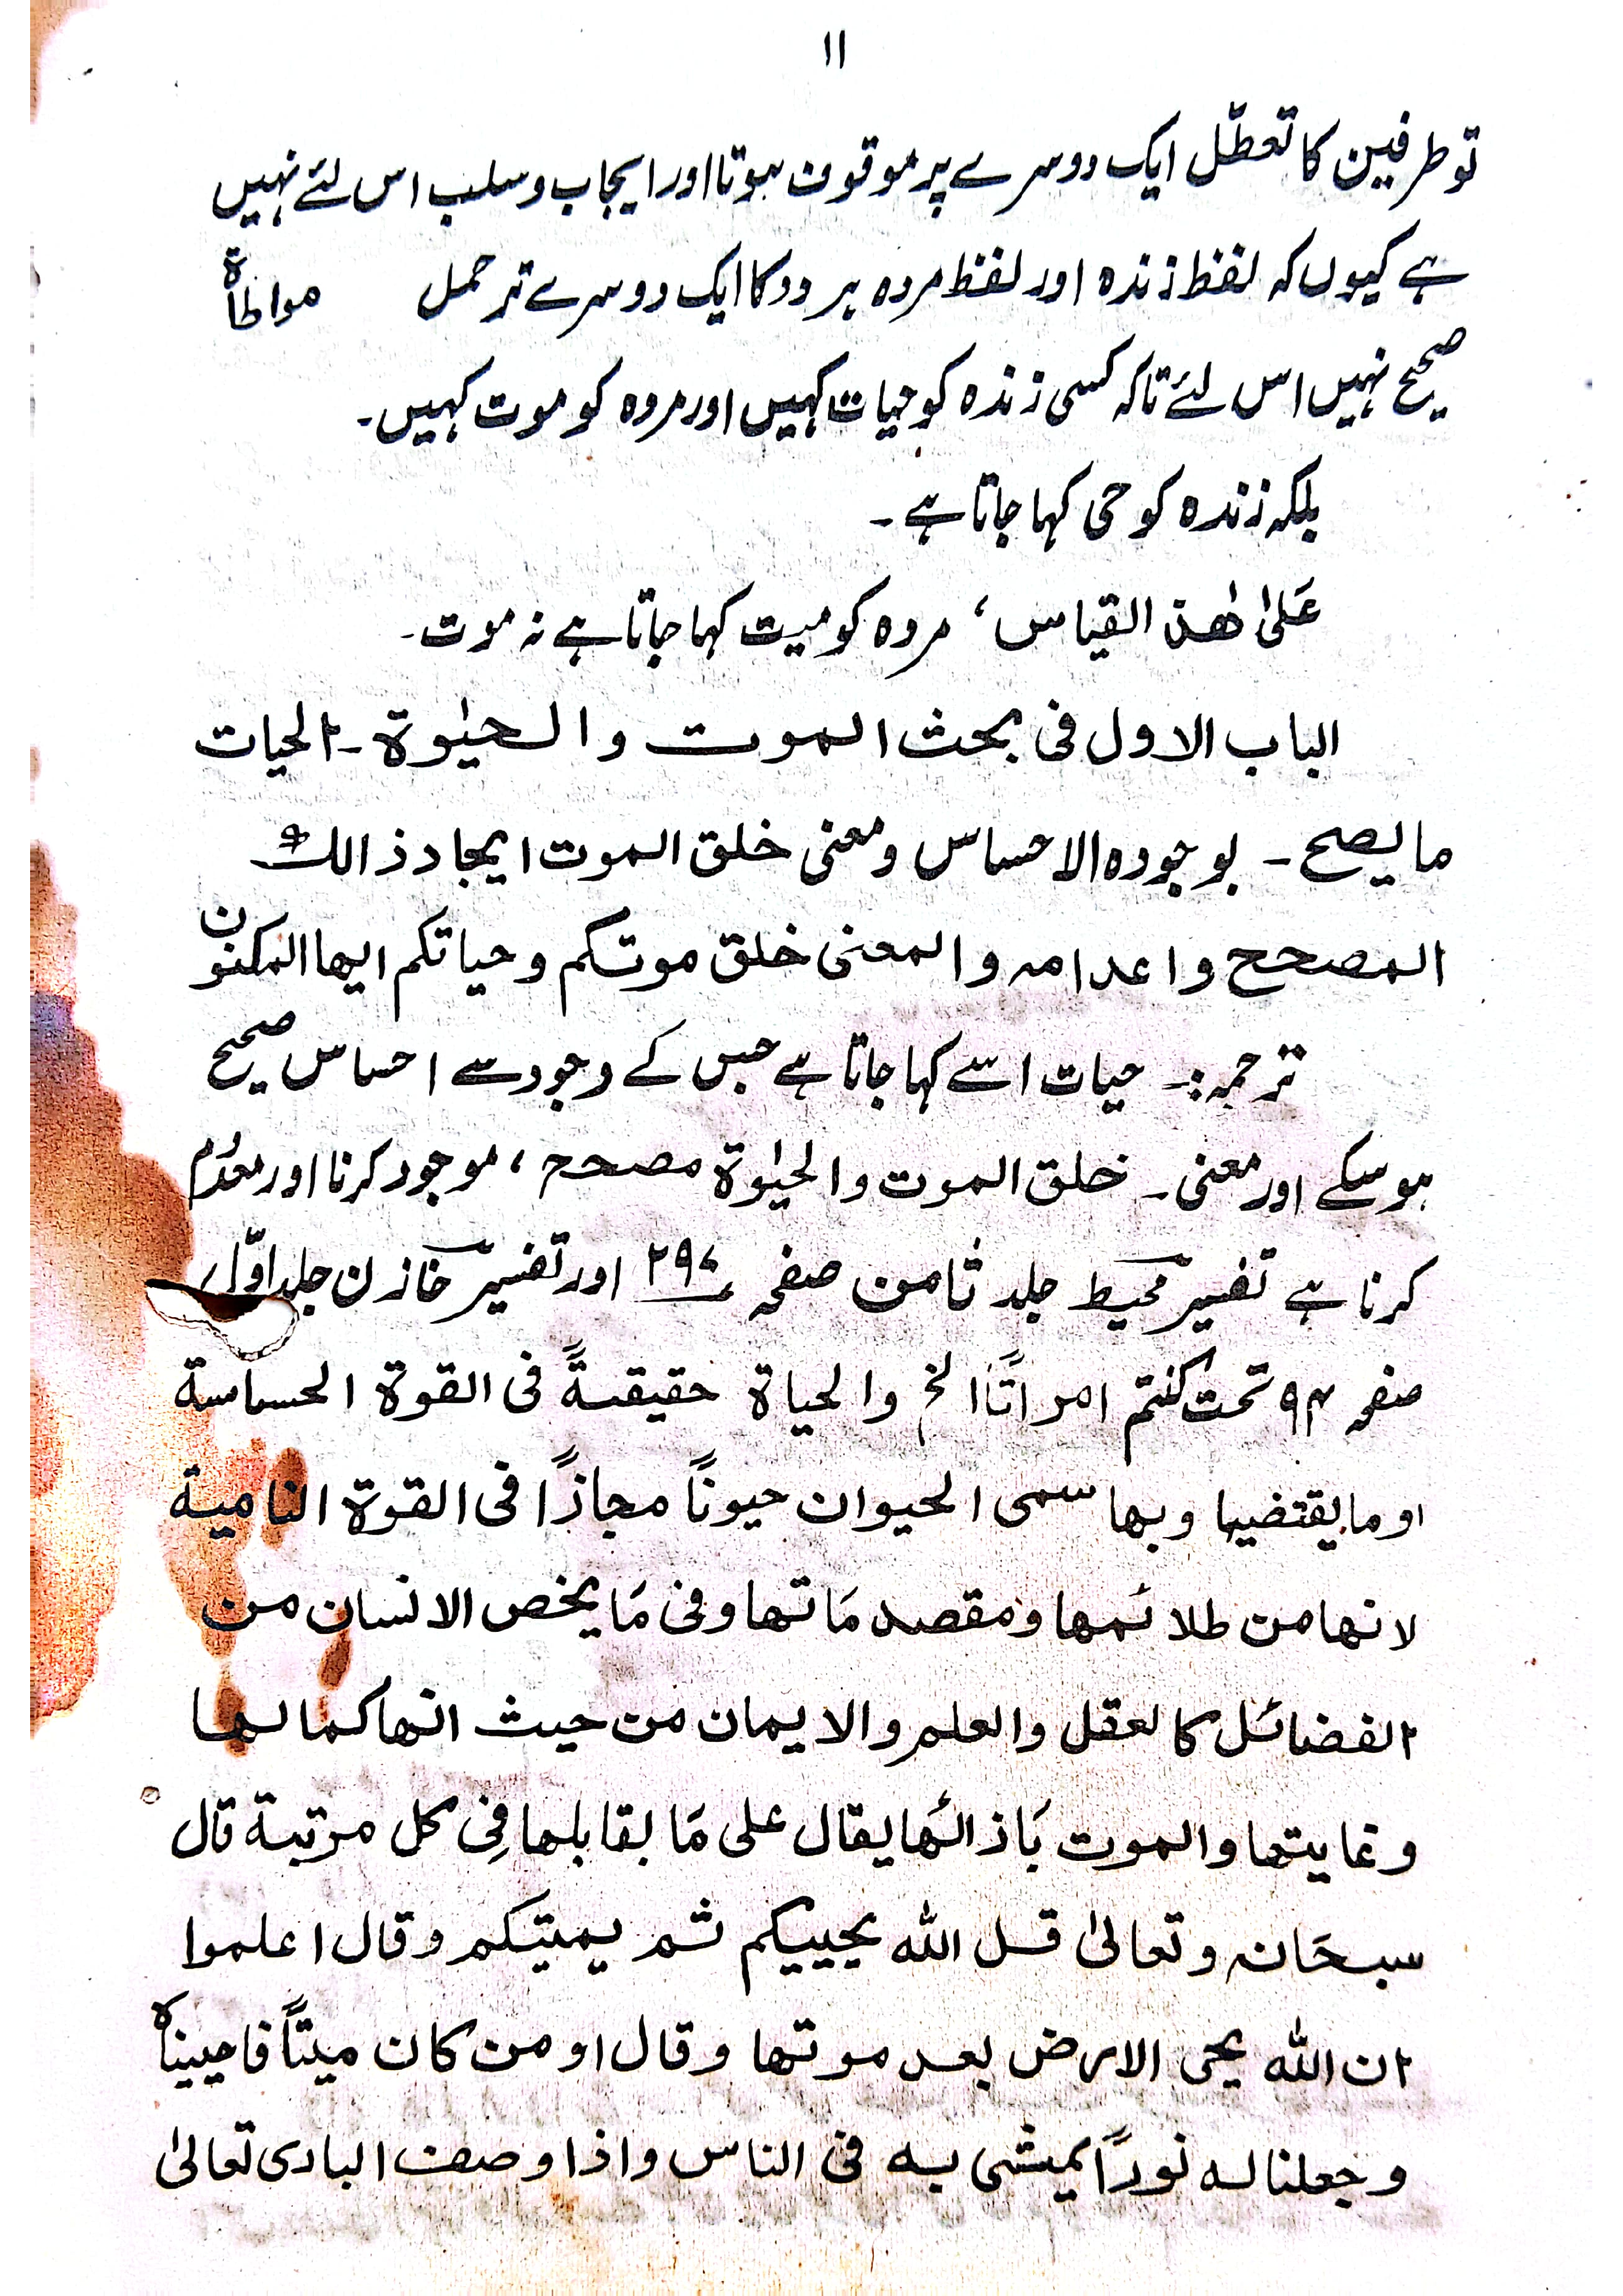 ۱۱
تو طرفین کا تعطّل ایک دوسرے پر موقوف ہوتا اور ایجاب و سلب اس لئے نہیں
ہے کیوں کہ لفظ زندہ اور لفظ مردہ ہر دو کا ایک دوسرے تر حمل مواطاۃ
صحیح نہیں اس لئے تاکہ کسی زندہ کو حیات کہیں اور مردہ کو موت کہیں۔
بلکہ زندہ کو حی کہا جاتا ہے۔
عَلیٰ ھٰذ القیاس، مردہ کو میت کہا جاتا ہے نہ موت۔
الباب الاول فی بحث الموت والحیٰوۃ۔ الحیات
ما یصح۔ بوجودہ الاحساس ومعنی خلق الموت ایجاد ذالک
المصحح واعدامہ والمعنی خلق موتکم وحیاتکم ایھا المکنون
ترجمہ:۔ حیات اسے کہا جاتا ہے جس کے وجود سے احساس صحیح
ہوسکے اور معنی۔ خلق الموت والحیٰوۃ مصحح، موجود کرنا اور معدُم
کرنا ہے تفسیر محیط جلد ثامن صفحہ ۲۹۷ اور تفسیر خازن جلد اوّل
صفحہ ۹۴ تحت کنتم امراتًا الخ والحیاۃ حقیقۃً فی القوۃ الحساسۃ
او ما یقتضیہا وبہا سمی الحیوان حیونًا مجازًا فی القوۃ النامیۃ
لانھا من طلائمھا ومقصد مَاتھا وفی مَا یخص الانسان من
الفضائل کالعقل والعلم والایمان من حیث انھا کمالھا
وغایتھا والموت بَاذائھا یقال علی مَا بقابلھا فِی کل مرتبۃ قال
سبحَانہ وتعالیٰ قل اللہ یحییکم ثم یمیتکم وقال اعلموا
ان اللہ یحی الارض بعد موتھا وقال او من کان میتًا فاحییناہ
وجعلنا لہ نورًا یمشی بہ فی الناس واذا وصف الباری تعالیٰ